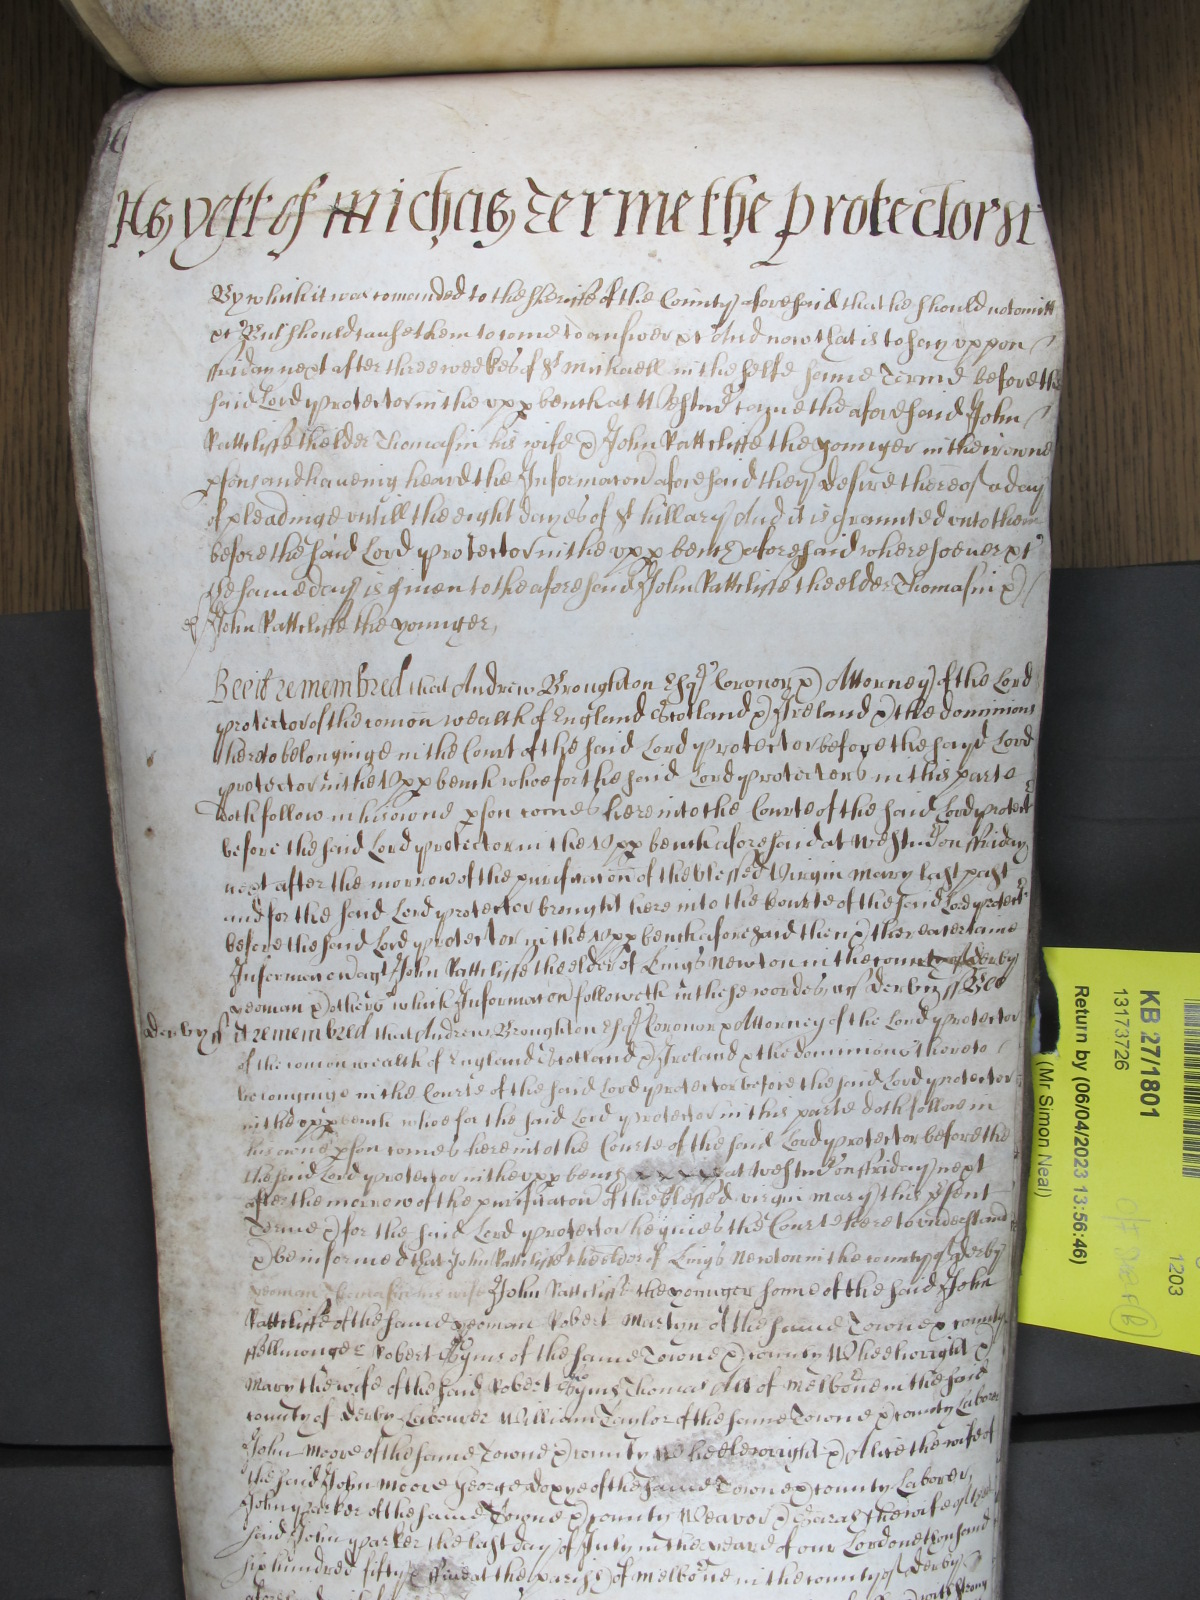 As yett of Michas Terme the Protectors
By which it was comanded to the Sheriffe of the County aforesaid that he should not omitt
et But should cause them to come to answer et And now that is to say uppon
ffriday next after three weekes of St Michaell in the selfe same Terme before the
said Lord Protector in the upp bench at Westmr came the aforesaid John
Rattcliffe the elder Thomasin his wife & John Rattcliffe the younger in their owne
psons and haveing heard the Informacon aforesaid they desire thereof a day
of pleadinge untill the eight dayes of St hillary And it is graunted unto them
before the said Lord Protector in the upp bench aforesaid wheresoever et
the same day is given to the aforesaid John Rattcliffe the elder Thomasin &
John Rattcliffe the younger,
Bee it remembred that Andrew Broughton Esqr Coronor & Attorney of the Lord
Protector of the comon wealth of England Scotland & Ireland & the dominions
thereto belonginge in the Court of the said Lord Protector before the sayd Lord
Protector in the Upp bench whoe for the said Lord Protectors in this parte
doth follow in his owne pson comes here into the Courte of the said Lord Protectr
before the said Lord Protector in the Upp bench aforesaid at Westmr on ffriday
next after the morrow of the purificacon of the blessed Virgin Mary last past
and for the said Lord Protector brought here into the Courte of the said Lord Protectr
before the said Lord Protector in the Upp bench aforesaid then & there a certaine
Informacon agt John Rattcliffe the elder of Kings Newton in the county of Derby
yeoman & others which Informacon followeth in these wordes, ss Derby ss Bee
Derby ss it remembred that Andrew Broughton Esqr Coronor & Attorney of the Lord Protector
of the comon wealth of England Scotland & Ireland & the dominions thereto
belonginge in the Courte of the said Lord Protector before the said Lord Protector
in the upp bench whoe for the said Lord Protector in this parte doth follow in
his owne pson comes here into the Courte of the said Lord Protector before the
the said Lord Protector in the upp bench at Westmr on ffriday next
after the morrow of the purificacon of the blessed virgin Mary this psent
Terme & for the said Lord Protector he gives the Court here to understand
& be informed that John Rattcliffe the elder of Kings Newton in the county of Derby
yeoman Thomasin his wife John Rattcliffe the younger sonne of the said John
Rattcliffe of the same yeoman Robert Martyn of the same Towne & county
ffellmonger Robert Syms of the same Towne & county Wheelwright &
Mary the wife of the said Robert Syms Thomas of Melborne in the said
county of Derby Labourer William Taylor of the same Towne & county Laborer
John Moore of the same Towne & county Wheelewright & Alice the wife of
the said John Moore George Doxye of the same Towne & county Laborer,
John Parker of the same Towne & county Weavor & Sarah the wife of the
said John Parker the last day of July in the yeare of our Lord one thousand
six hundred fifty & five at the parish of Melborne in the county of Derby
KB 27/1801
13173726
Return by (06/04/2023 13:56:46)
(Mr Simon Neal)
1203